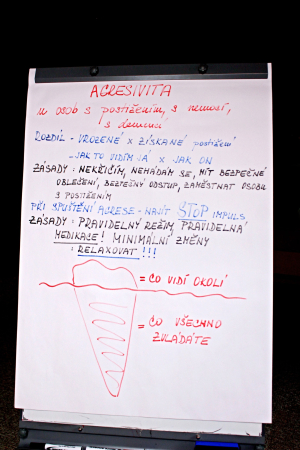 AGRESIVITA
u osob s postižením, s nemocí,
s demencí
ROZDÍL - VROZENÉ x ZÍSKANÉ postižení
- JAK TO VIDÍM JÁ x JAK ON
ZÁSADY: NEKŘIČÍM, NEHÁDAM SE, MÍT BEZPEČNÉ
OBLEČENÍ, BEZPEČNÝ ODSTUP, ZAMĚSTNAT OSOBU
S POSTIŽENÍM
PŘI SPUŠTĚNÍ AGRESE - NAJÍT STOP IMPULS
ZÁSADY: PRAVIDELNÝ REŽIM, PRAVIDELNÁ
MEDIKACE! MINIMÁLNÍ ZMĚNY
: RELAXOVAT!!!
= CO VIDÍ OKOLÍ
= CO VŠECHNO
ZVLÁDÁTE